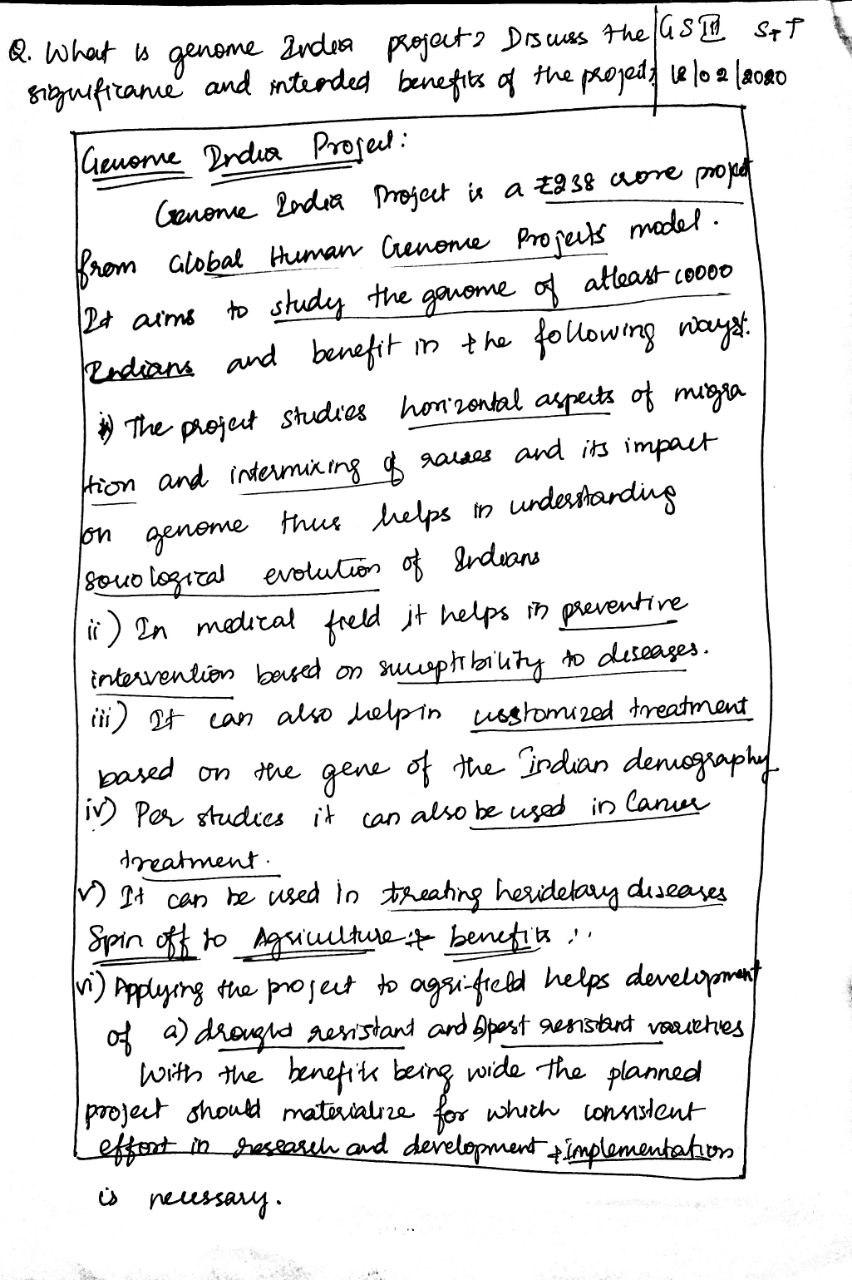 Q. What is genome India project? Discuss the
significance and intended benefits of the project?
GS III S&T
12/02/2020
Genome India Project:
Genome India Project is a ₹238 crore project
from Global Human Genome Projects model.
It aims to study the genome of atleast 10000
Indians and benefit in the following ways:
i) The project studies horizontal aspects of migra
tion and intermixing of races and its impact
on genome thus helps in understanding
sociological evolution of Indians
ii) In medical field it helps in preventive
intervention based on susceptibility to diseases.
iii) It can also help in customized treatment
based on the gene of the indian demography
iv) Per studies it can also be used in Cancer
treatment.
v) It can be used in treating heridetary diseases
Spin off to Agriculture & benefits :
vi) Applying the project to agri-field helps development
of a) drought resistant and b) pest resistant varieties
With the benefits being wide the planned
project should materialize for which consistent
effort in research and development & implementation
is necessary.